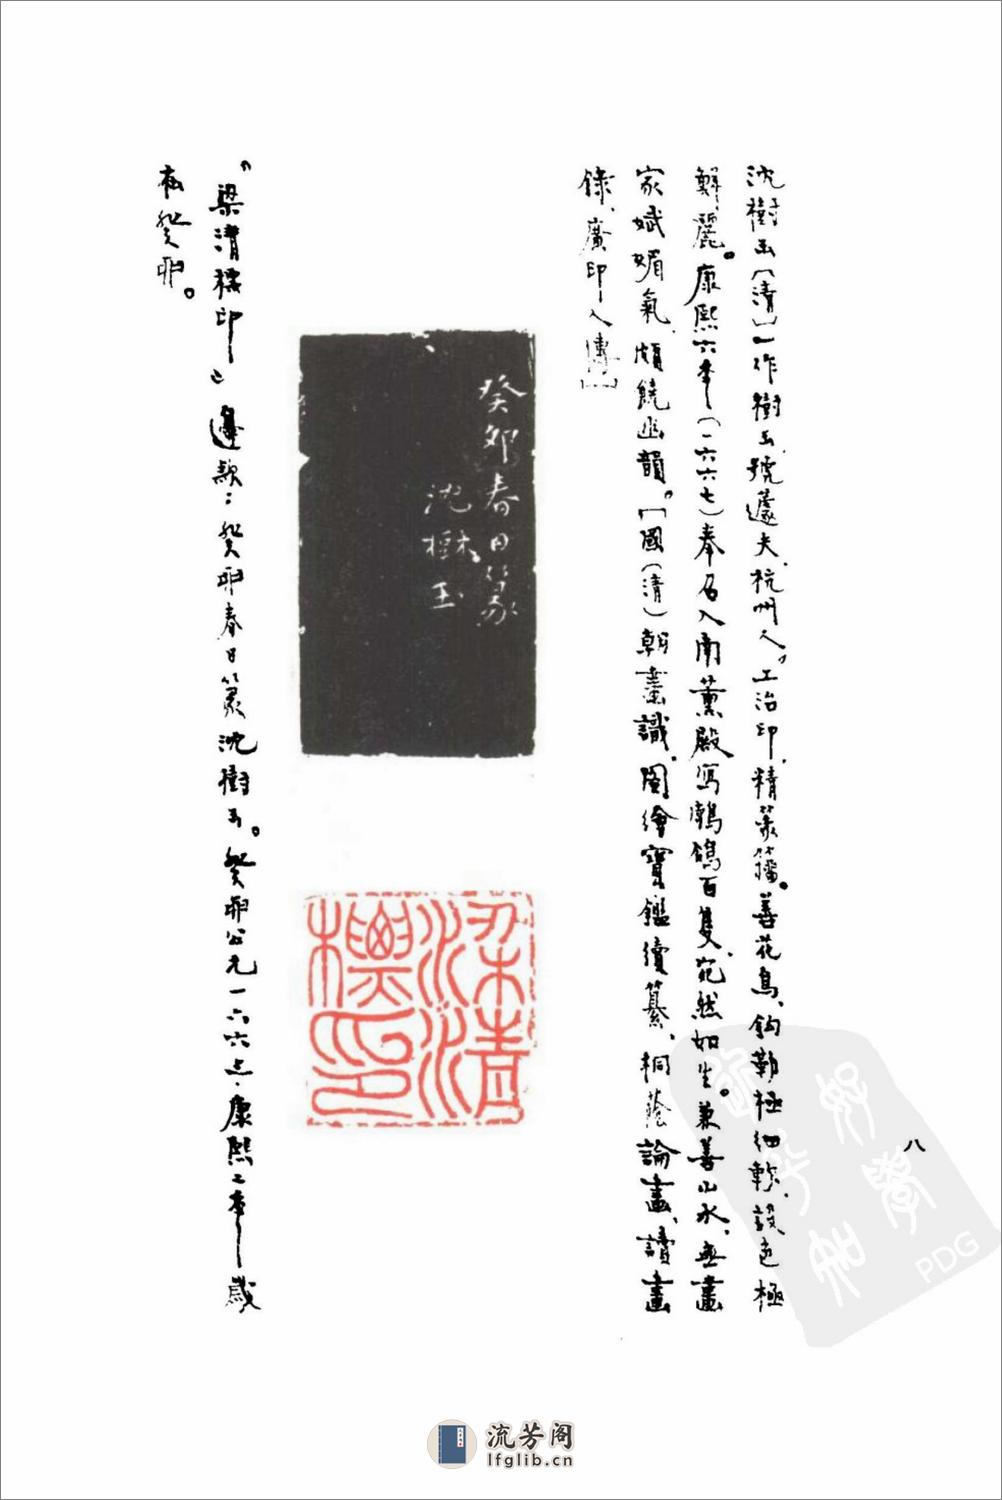 沈樹玉〔清〕一作樹玉、號蘧夫、杭州人。工治印、精篆籀。善花鳥、鈎勒極細軟、設色極
鮮麗。康熙六年(一六六七)奉召入南薰殿寫鵪鶉百隻、宛然如生。兼善山水、無畫
家斌媚氣、頗饒幽韻。〔國(清)朝畫識、圖繪寶鑑續纂、桐蔭論畫、讀畫
錄、廣印人傳〕
癸卯春日篆
沈樹玉
梁清
標印
"梁清標印" 邊款:癸卯春日篆沈樹玉。癸卯公元一六六三、康熙二年歲
在癸卯。
八
PDG
流芳阁
lfglib.cn